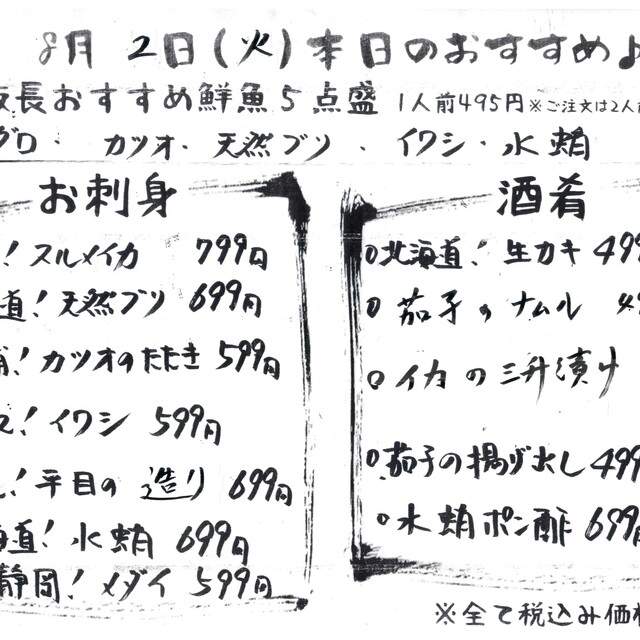 8月 2日(火)本日のおすすめ♪
長おすすめ鮮魚5点盛 1人前495円※ご注文は2人
グロ・カツオ・天然ブリ・イワシ・水蛸
お刺身
！スルメイカ 799円
道！天然ブリ 699円
！カツオのたたき 599円
！イワシ 599円
！平目の造り 699円
道！水蛸 699円
静岡！メダイ 599円
酒肴
○北海道！生カキ 499
○茄子のナムル 4
○イカの三升漬け
○茄子の揚げ出し 499
○水蛸ポン酢 699
※全て税込み価格